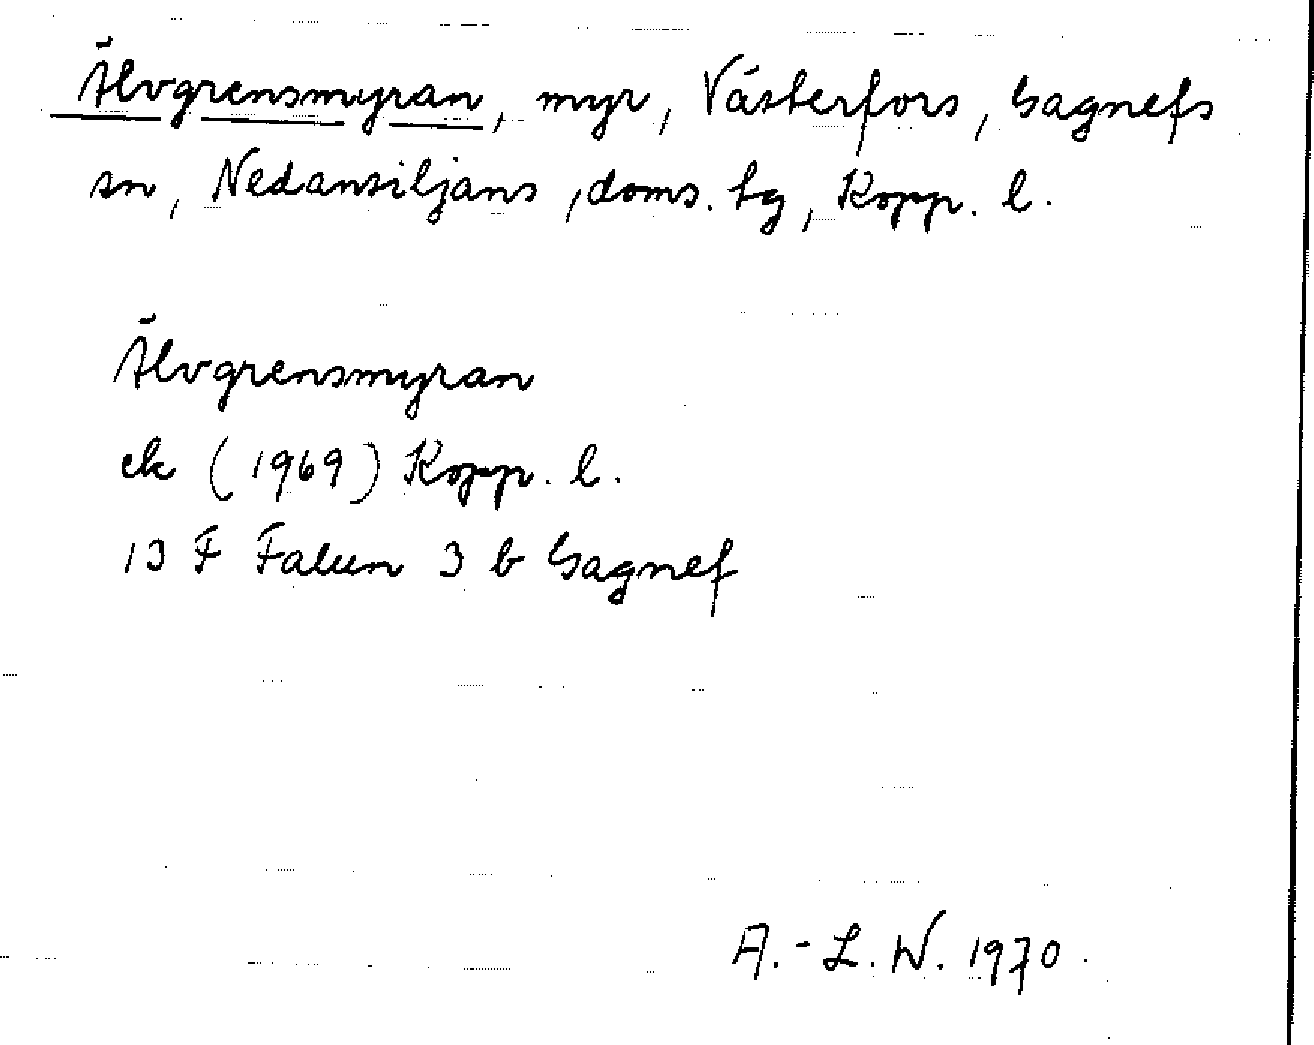 Älvgrensmyran, myr, Västerfors, Gagnefs
sn, Nedansiljans, doms. hg, Kopp. l.
Älvgrensmyran
ek (1969) Kopp. l.
13 F Falun 3 b Gagnef
A.-L.W. 1970.